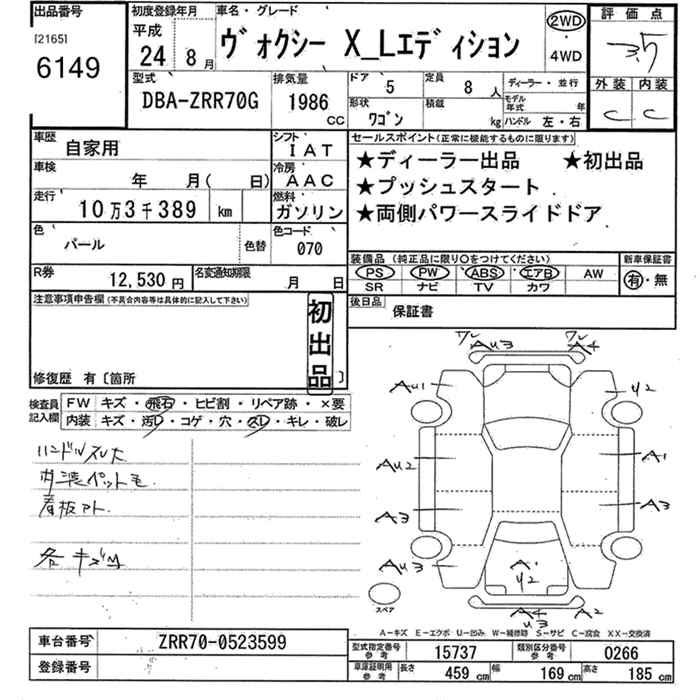 出品番号 初度登録年月 車名・グレード 評価点
[2165] 平成 2WD
6149 24 8月 ヴォクシー X_Lエディション 4WD 3.5
型式 排気量 ドア 5 定員 8人 ディーラー・並行 外装 内装
DBA-ZRR70G 1986 CC 形状 ワゴン 積載 kg モデル年式 年 C C
ハンドル 左・右
車歴 自家用 シフト IAT セールスポイント(正常に機能するものに限ります)
車検 年 月( 日) 冷房 AAC ★ディーラー出品 ★初出品
走行 10万3千389 km 燃料 ガソリン ★プッシュスタート
★両側パワースライドドア
色 パール 色替 色コード 070
装備品(純正品に限り○をつけてください) 新車保証書
R券 12,530円 名変通知期限 月 日 PS PW ABS エアB AW 有・無
SR ナビ TV カワ
注意事項申告欄(不具合内容等は具体的に記入して下さい) 初出品 後日品 保証書
修復歴 有〔箇所 〕
検査員記入欄 FW キズ・飛石・ヒビ割・リペア跡・×要
内装 キズ・汚レ・コゲ・穴・スレ・キレ・破レ
ワレ AU3 ワレ A4
AU1 U2
ハンドルスレ大
内装ペット毛 AU2 A1
看板アト A3 A3
各キズ凹 AU3 A1 U2
スペア A4 U3 A2
A-キズ E-エクボ U-凹み W-補修跡 S-サビ C-腐食 XX-交換済
車台番号 ZRR70-0523599 型式指定番号 参考 15737 類別区分番号 参考 0266
登録番号 車庫証明用 参考 長さ 459 cm 幅 169 cm 高さ 185 cm